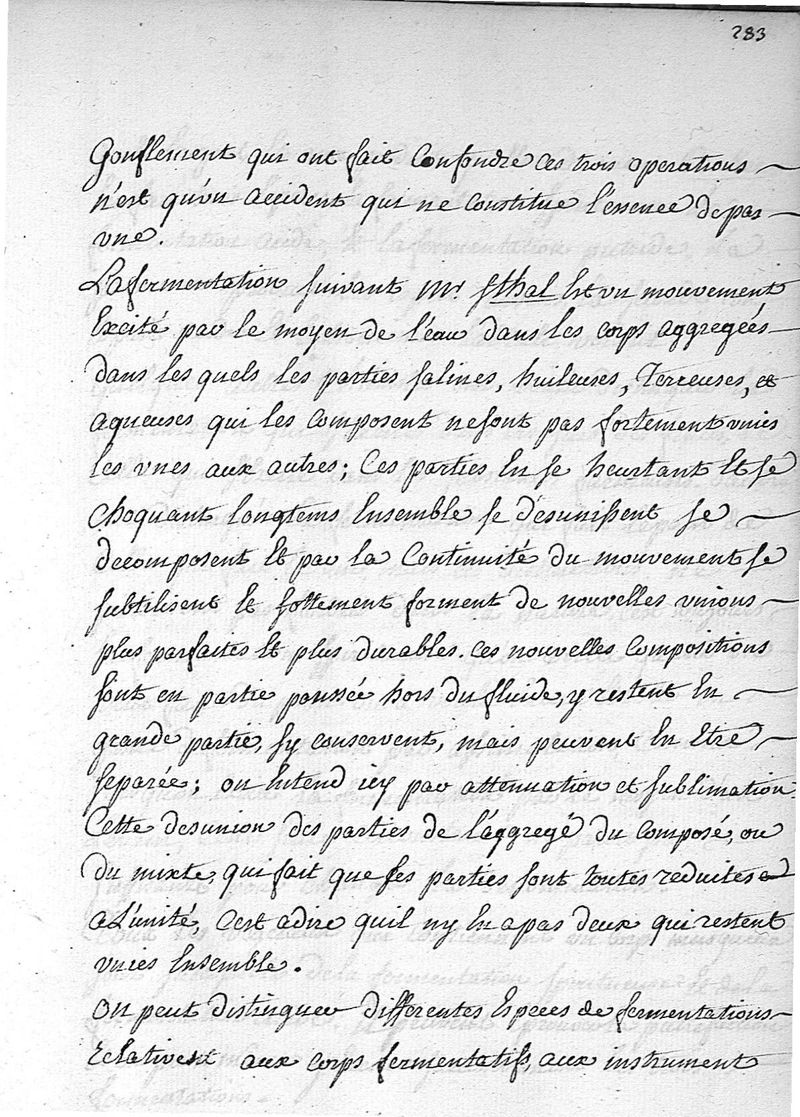 283
Gonflement qui ont fait confondre ces trois operations
n'est qu'un accident qui ne constitue l'essence depas
une.
La fermentation suivant Mr. Sthal Est un mouvement
Excité par le moyen de l'éau dans les corps aggregeés
dans les quels les parties salines, huileuses, Terreuses, et
aqueuses qui les composent ne sont pas fortement unies
les unes aux autres; Ces parties En se heurtant Et se
choquant longtems Ensemble se désunissent se
decomposent Et par la Continuité du mouvement se
subtilisent Et forment de nouvelles unions
plus parfaites Et plus durables. ces nouvelles compositions
sont en partie poussée hors du fluide, y restent En
grande partie, sy conservent, mais peuvent En Etre
separée; on Entend icy par attenuation et sublimation
Cette desunion des parties de l'aggregé du composé, ou
du mixte, qui fait que ses parties sont toutes reduites
a L'unité, C'est adire quil ny En a pas deux qui restent
unies Ensemble.
On peut distinguer differentes Especes de fermentations
relativent aux corps fermentatifs, aux instrument